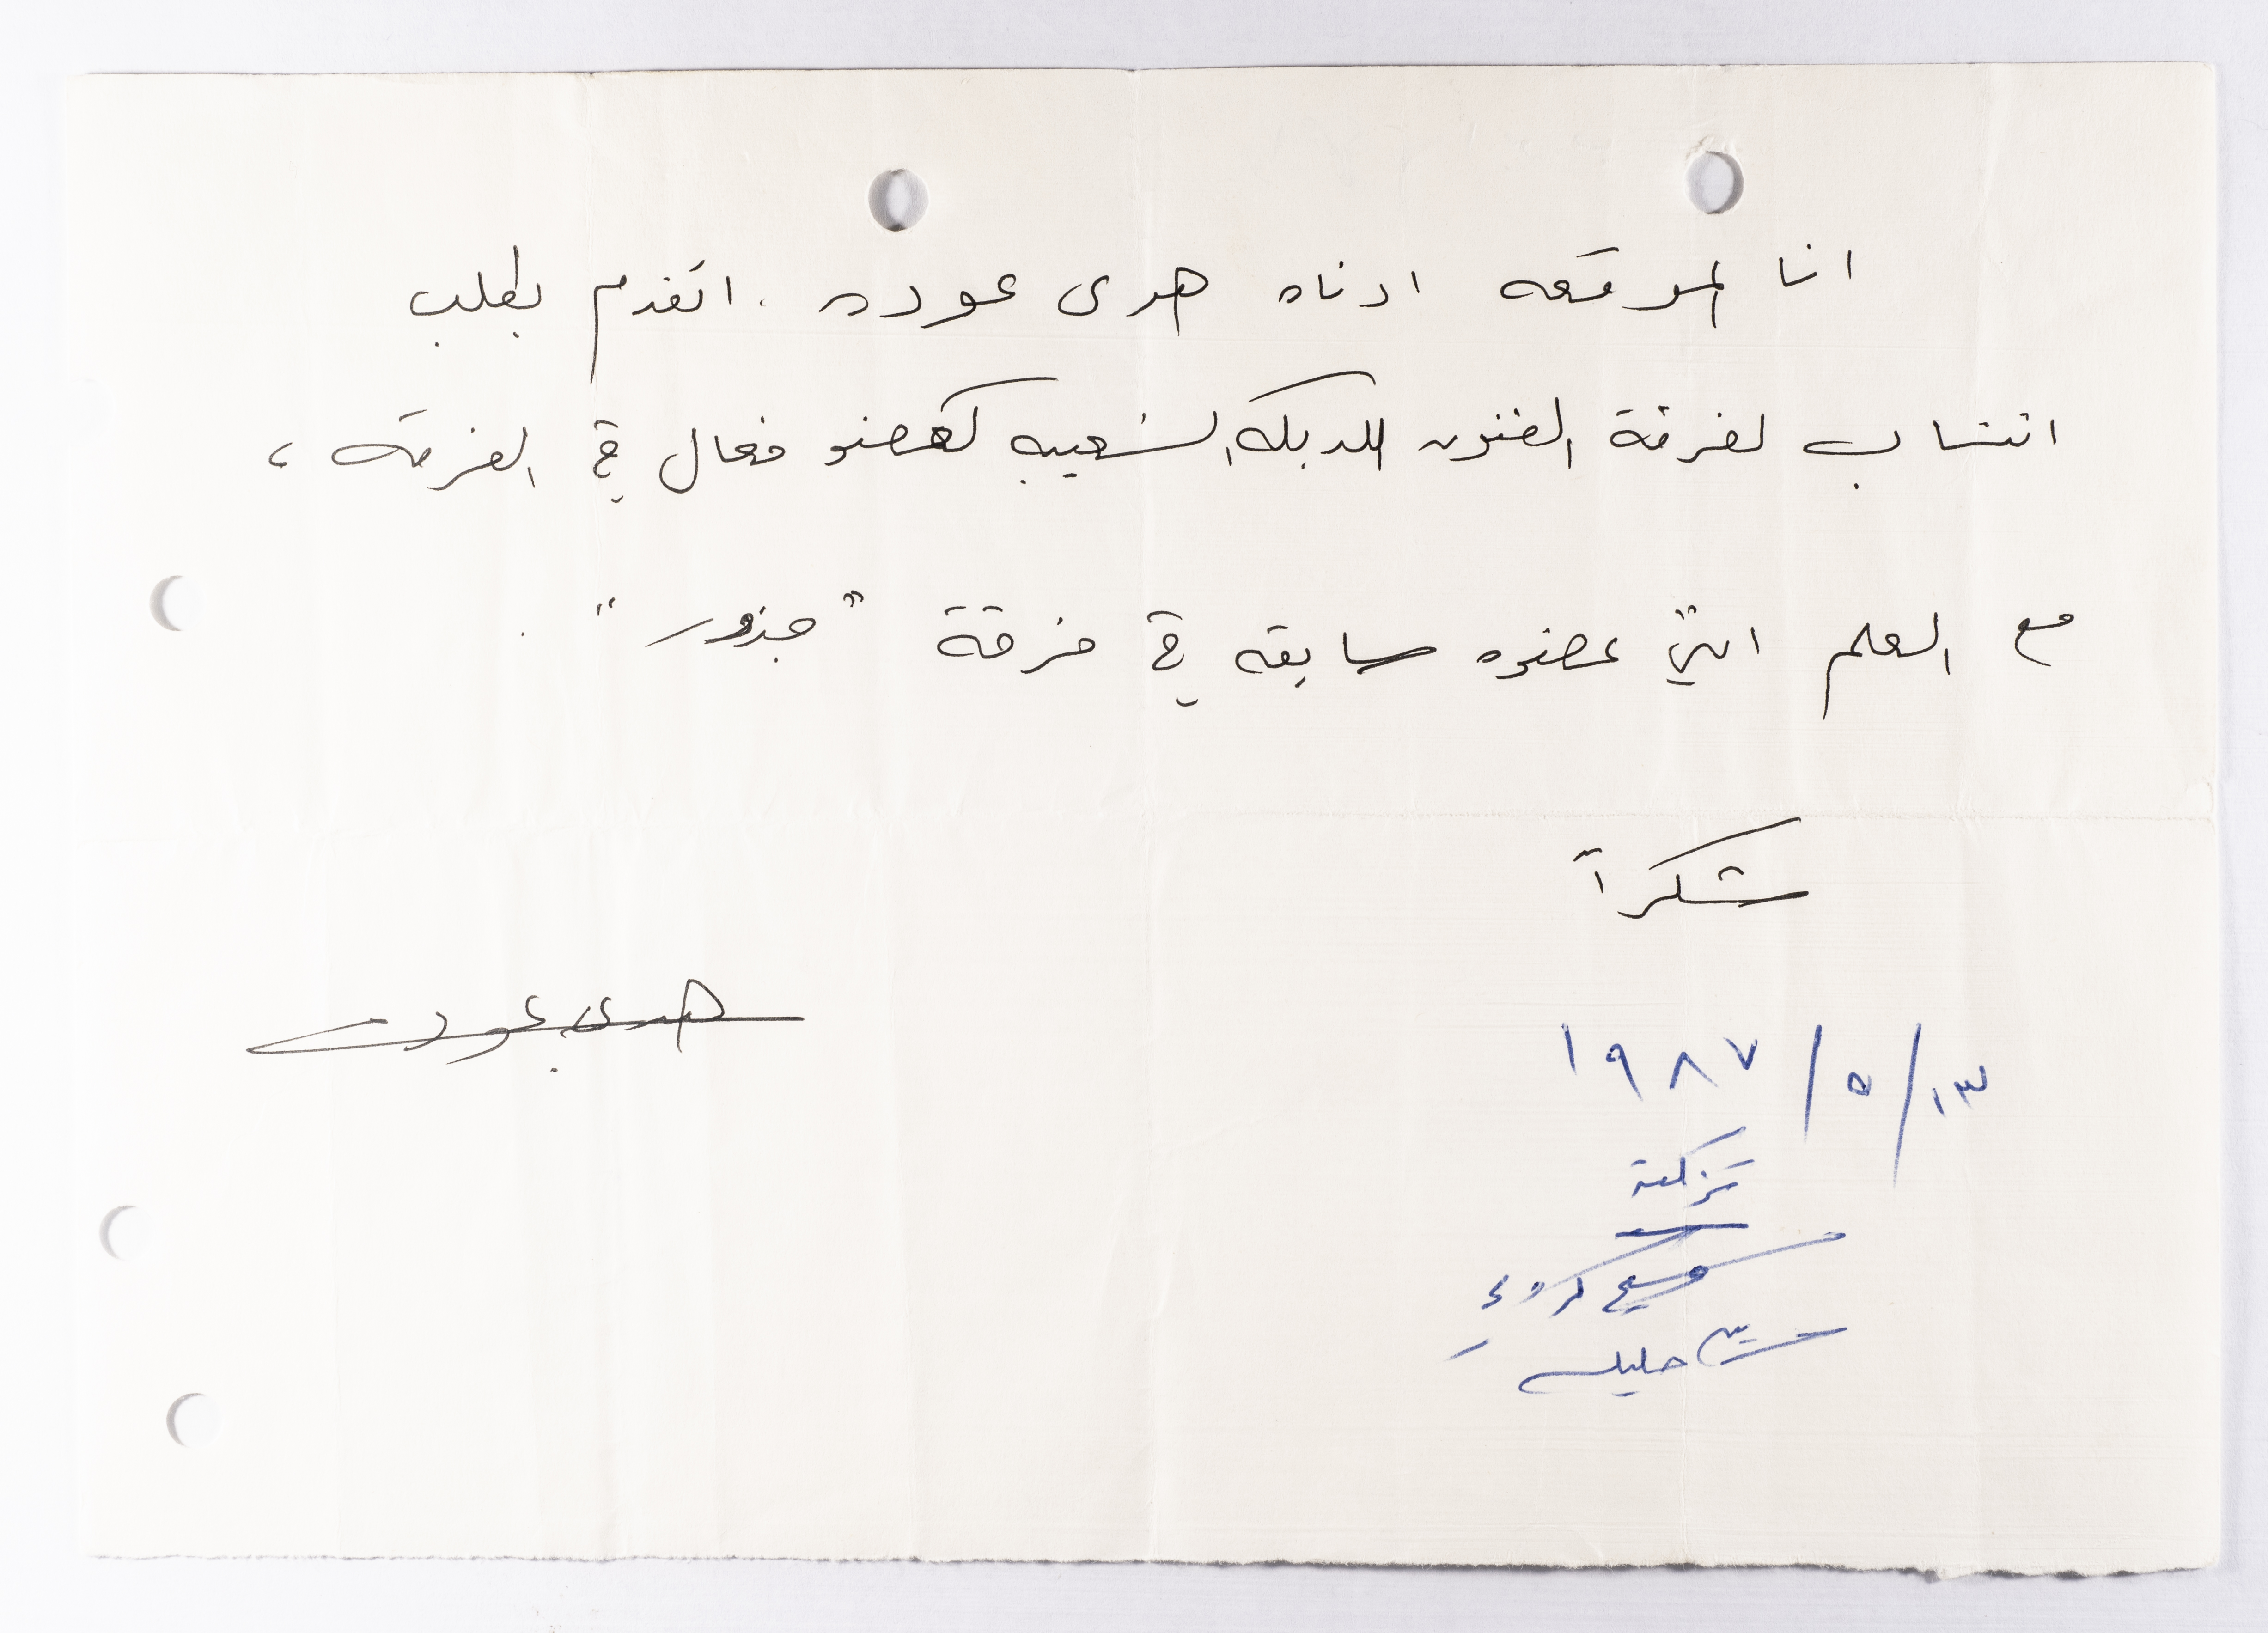 انا الموقعه ادناه هدى عوده . اتقدم بطلب
انتساب لفرقة الفنون للدبكه الشعبيه كعضو فعال في الفرقه ،
مع العلم انني عضوه سابقه في فرقة "جذور" .
شكراً
هدى عوده
١٣/ ٥ / ١٩٨٧
تزكية
وسيم